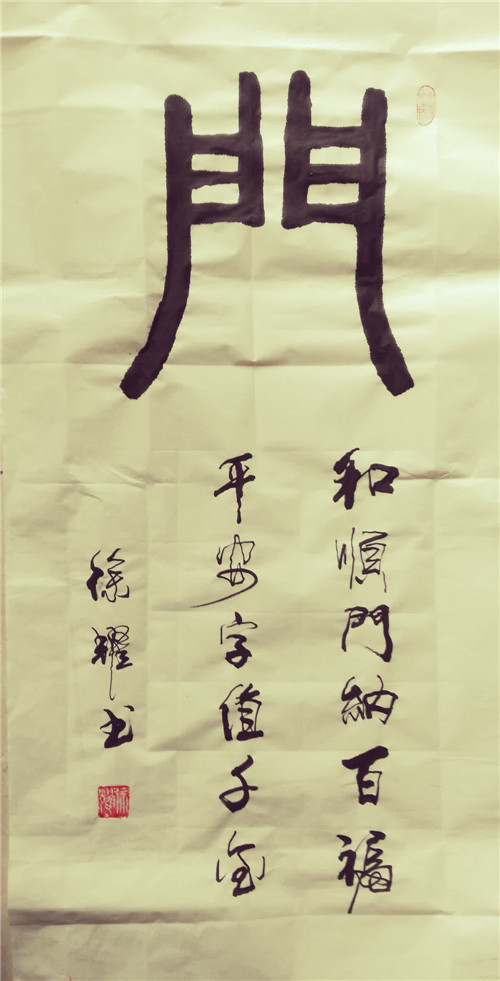 門
和順門納百福
平安字值千金
徐耀书